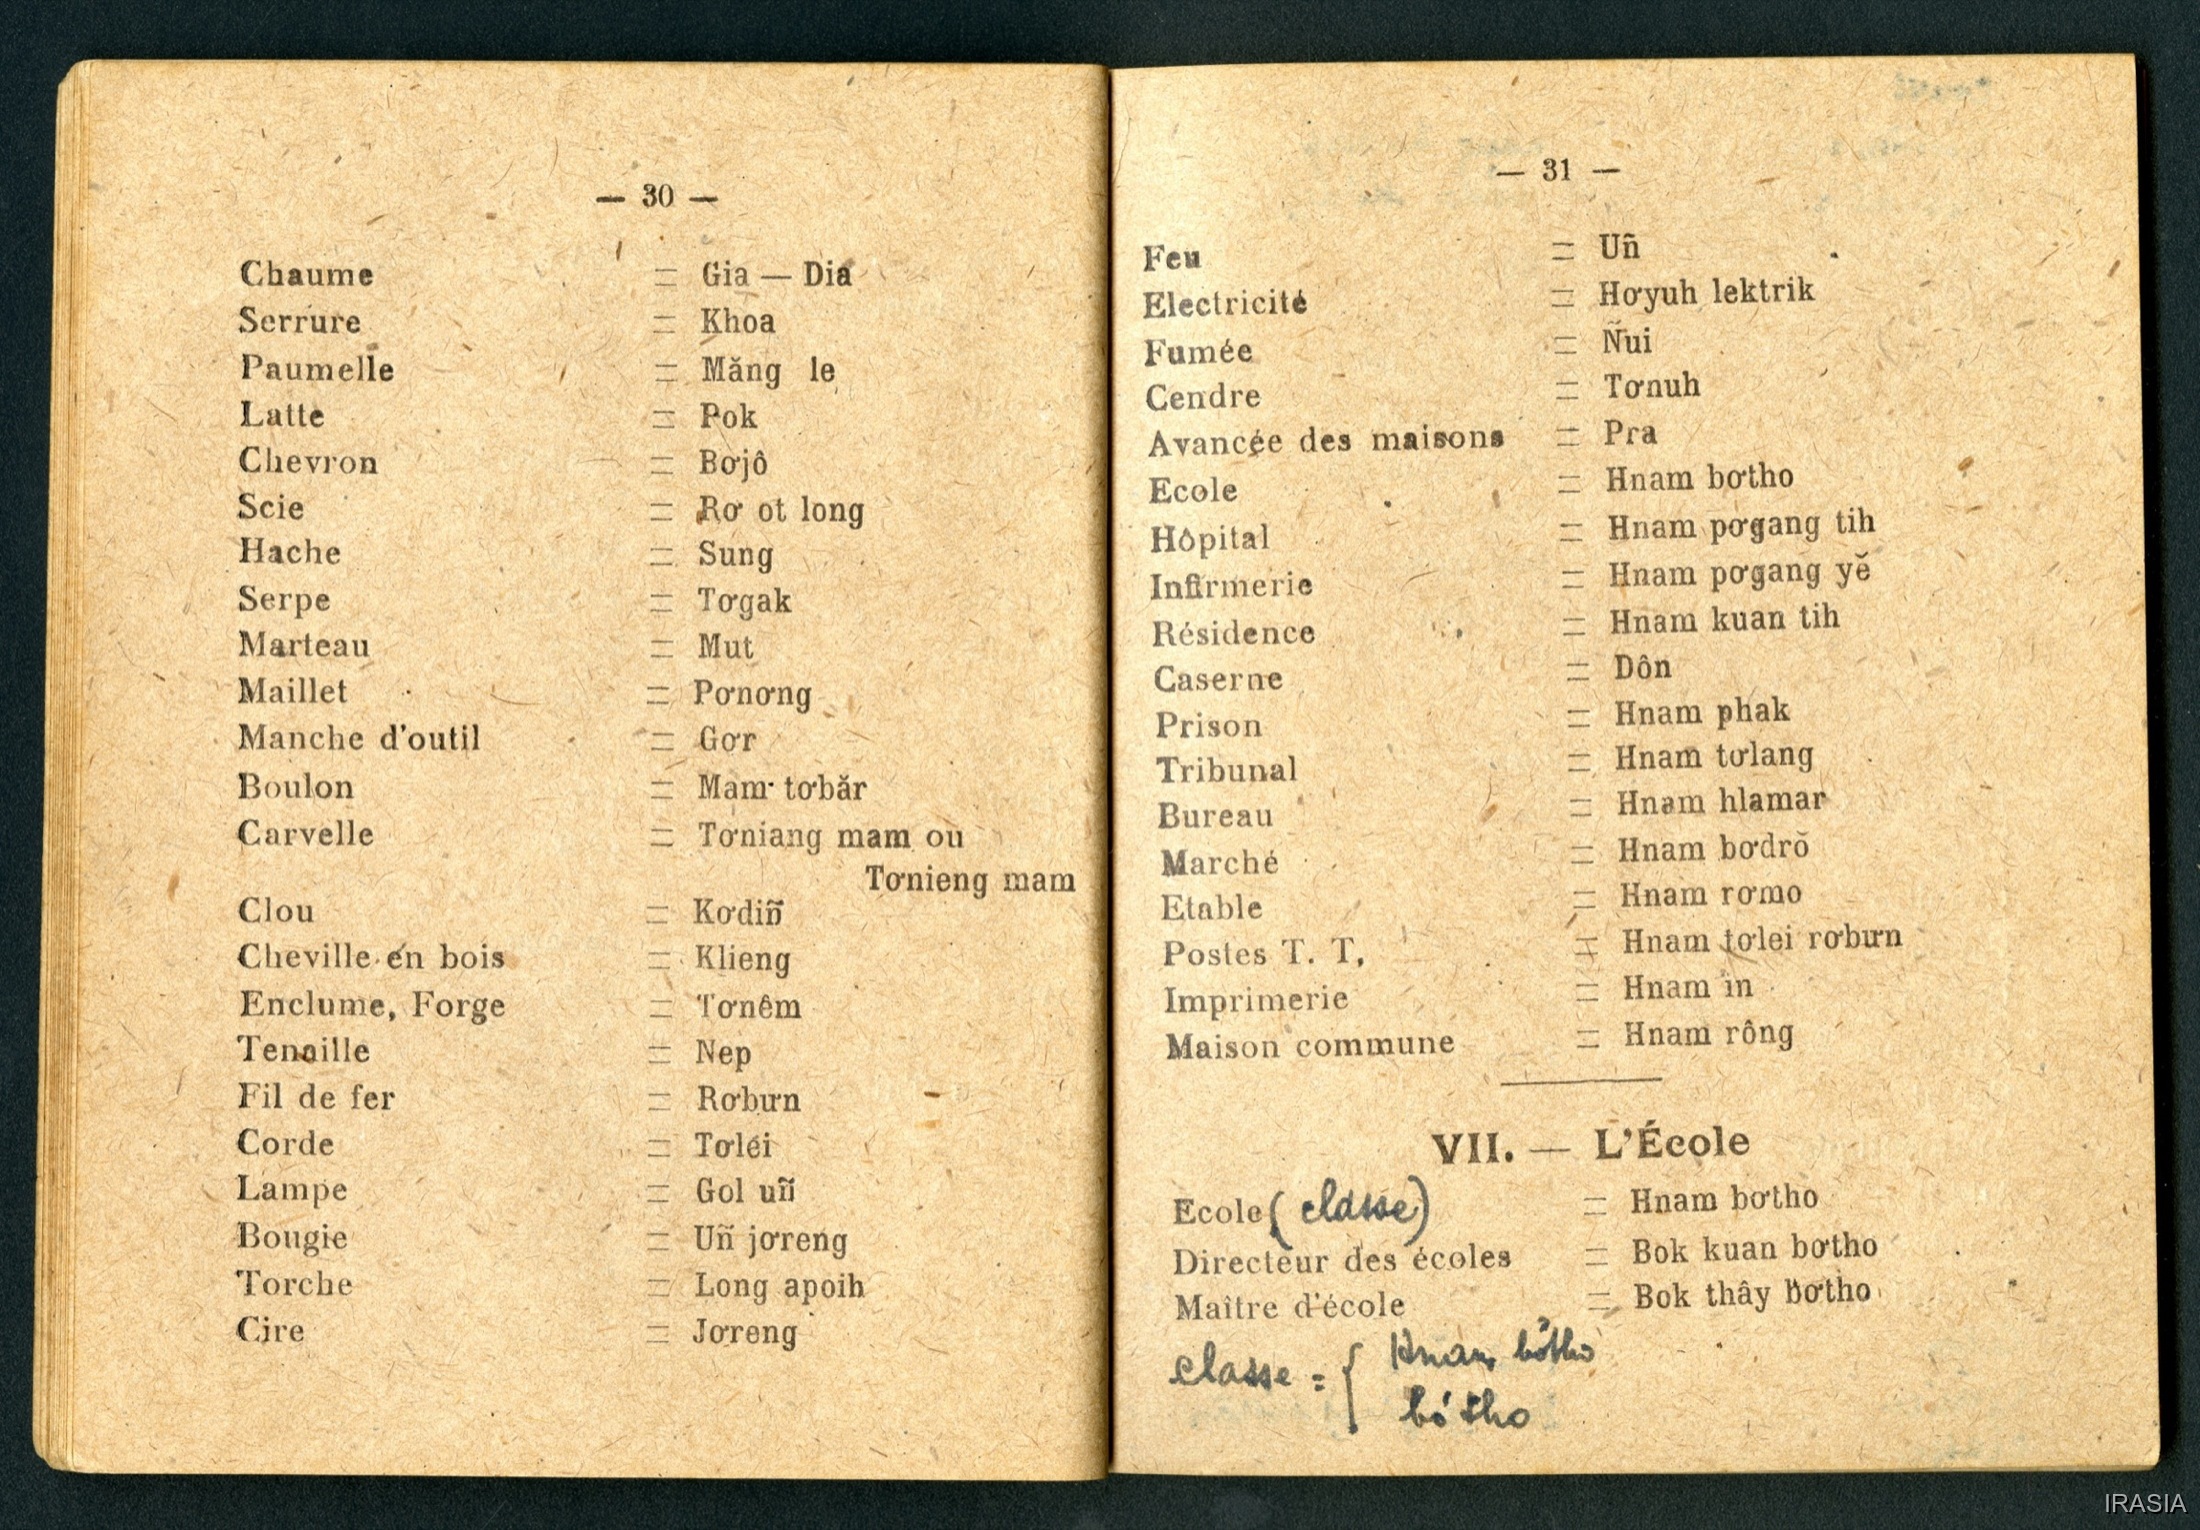 — 30 —
Chaume = Gia — Dia
Serrure = Khoa
Paumelle = Măng le
Latte = Pok
Chevron = Bơjô
Scie = Rơ ot long
Hache = Sung
Serpe = Tơgak
Marteau = Mut
Maillet = Pơnơng
Manche d'outil = Gơr
Boulon = Mam tơbăr
Carvelle = Tơniang mam ou
Tơnieng mam
Clou = Kơdiñ
Cheville en bois = Klieng
Enclume, Forge = Tơnêm
Tenaille = Nep
Fil de fer = Rơbưn
Corde = Tơlei
Lampe = Gol uñ
Bougie = Uñ jơreng
Torche = Long apoih
Cire = Jơreng
— 31 —
Feu = Uñ
Electricité = Hơyuh lektrik
Fumée = Ñui
Cendre = Tơnuh
Avancée des maisons = Pra
Ecole = Hnam bơtho
Hôpital = Hnam pơgang tih
Infirmerie = Hnam pơgang yĕ
Résidence = Hnam kuan tih
Caserne = Dôn
Prison = Hnam phak
Tribunal = Hnam tơlang
Bureau = Hnam hlamar
Marché = Hnam bơdrŏ
Etable = Hnam rơmo
Postes T. T. = Hnam tơlei rơbưn
Imprimerie = Hnam in
Maison commune = Hnam rông
VII. — L'École
Ecole (classe) = Hnam bơtho
Directeur des écoles = Bok kuan bơtho
Maître d'école = Bok thây bơtho
classe = { Hnam bơtho
bơtho
IRASIA